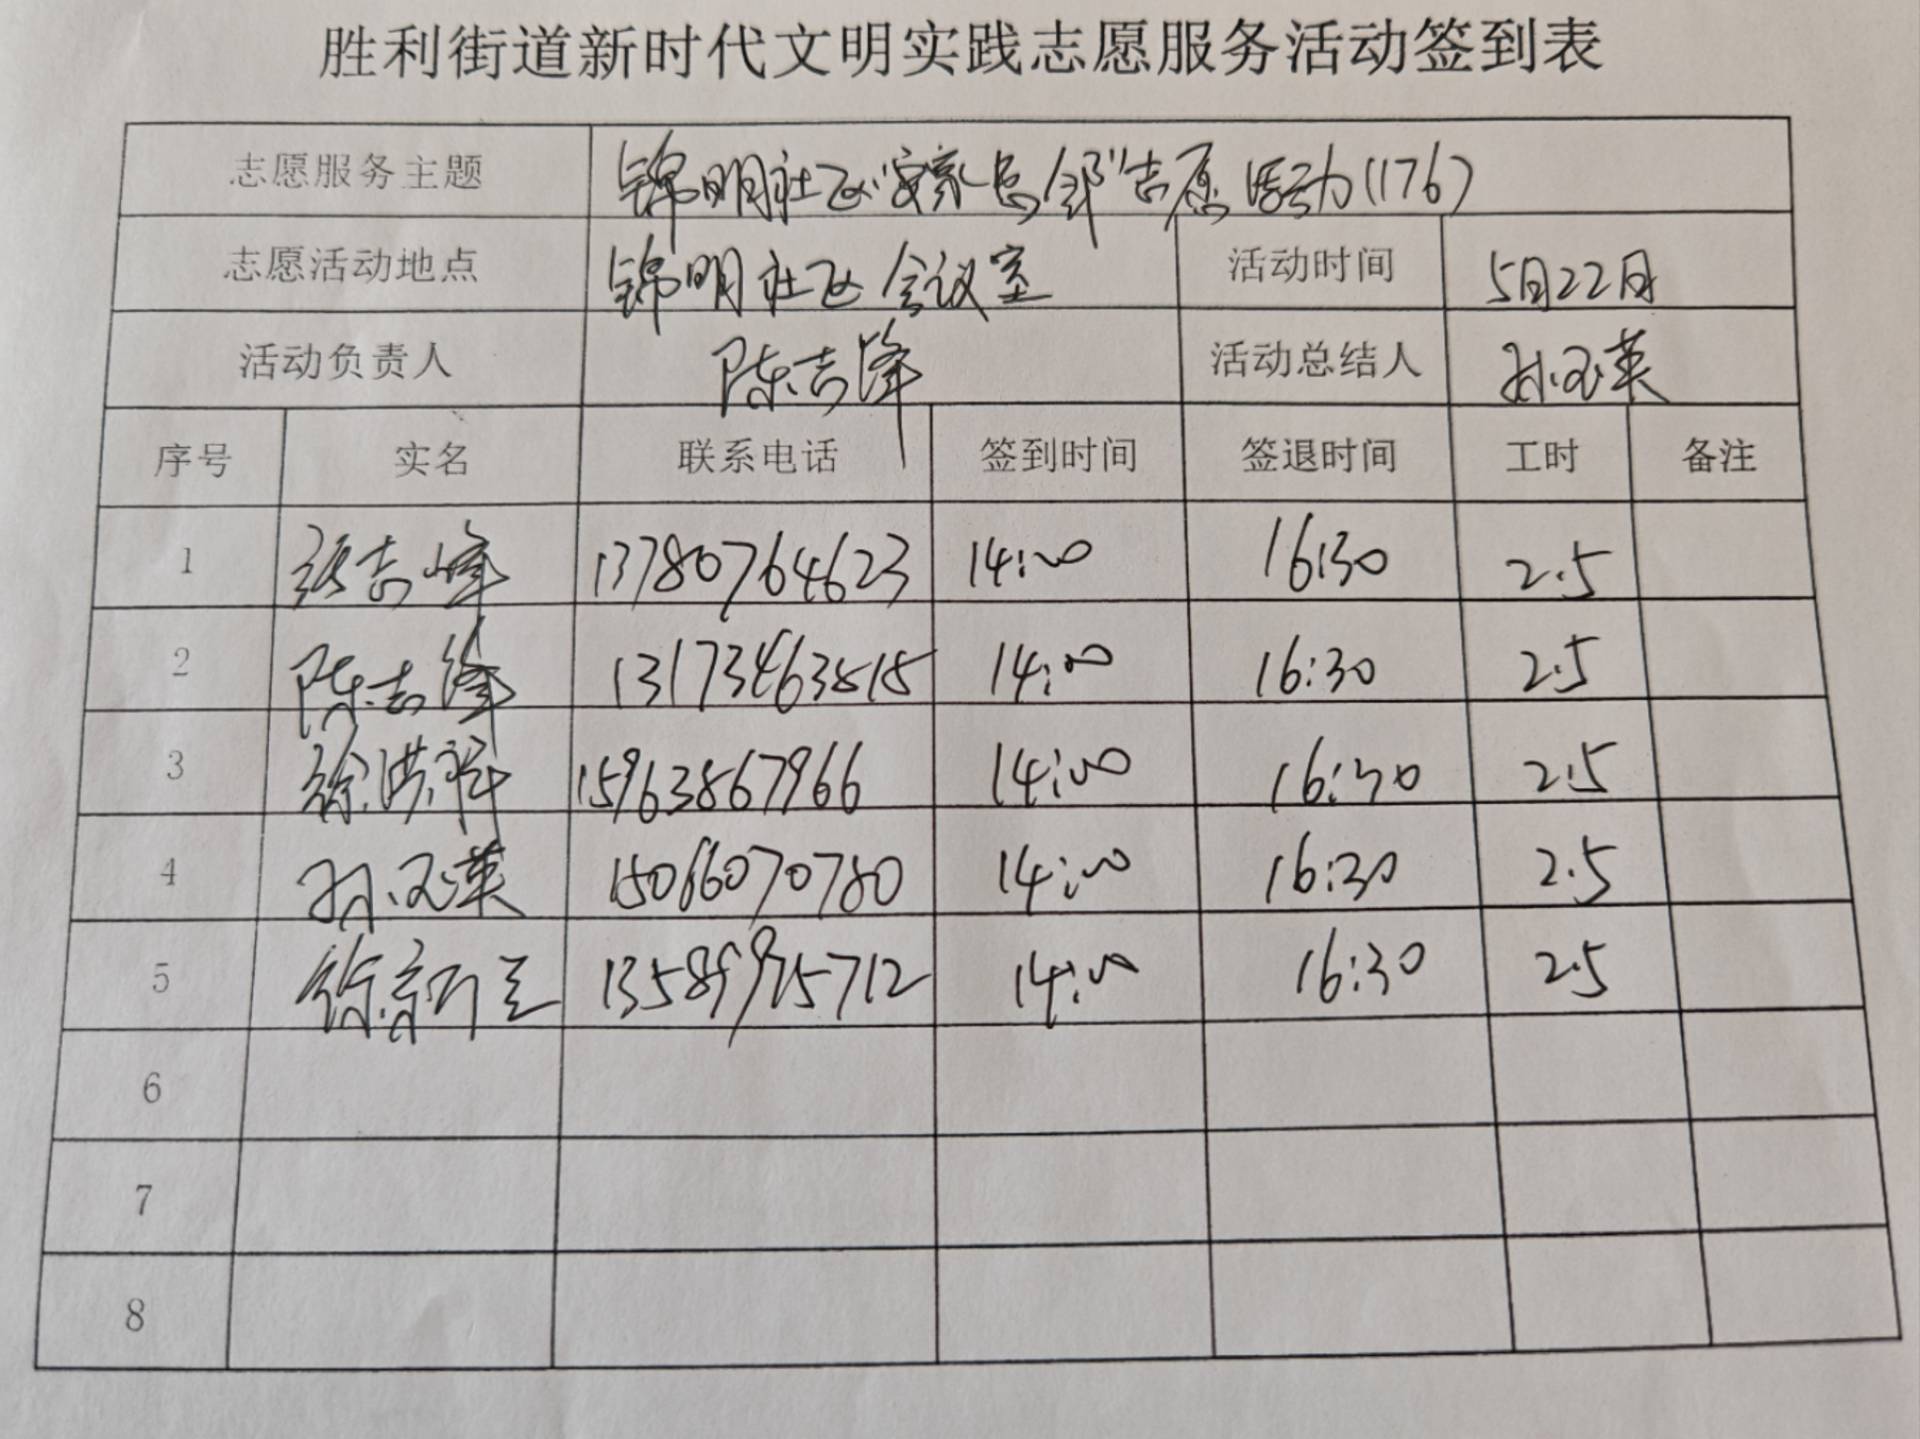 胜利街道新时代文明实践志愿服务活动签到表
志愿服务主题 锦明社区"安家息邻"志愿活动(176)
志愿活动地点 锦明社区会议室 活动时间 5月22日
活动负责人 陈志峰 活动总结人 孙玉英
序号 实名 联系电话 签到时间 签退时间 工时 备注
1 张志峰 13780764623 14:00 16:30 2.5
2 陈志峰 13173463815 14:00 16:30 2.5
3 徐洪祥 15963867966 14:00 16:30 2.5
4 孙玉英 15066070780 14:00 16:30 2.5
5 徐新 13589975712 14:00 16:30 2.5
6
7
8